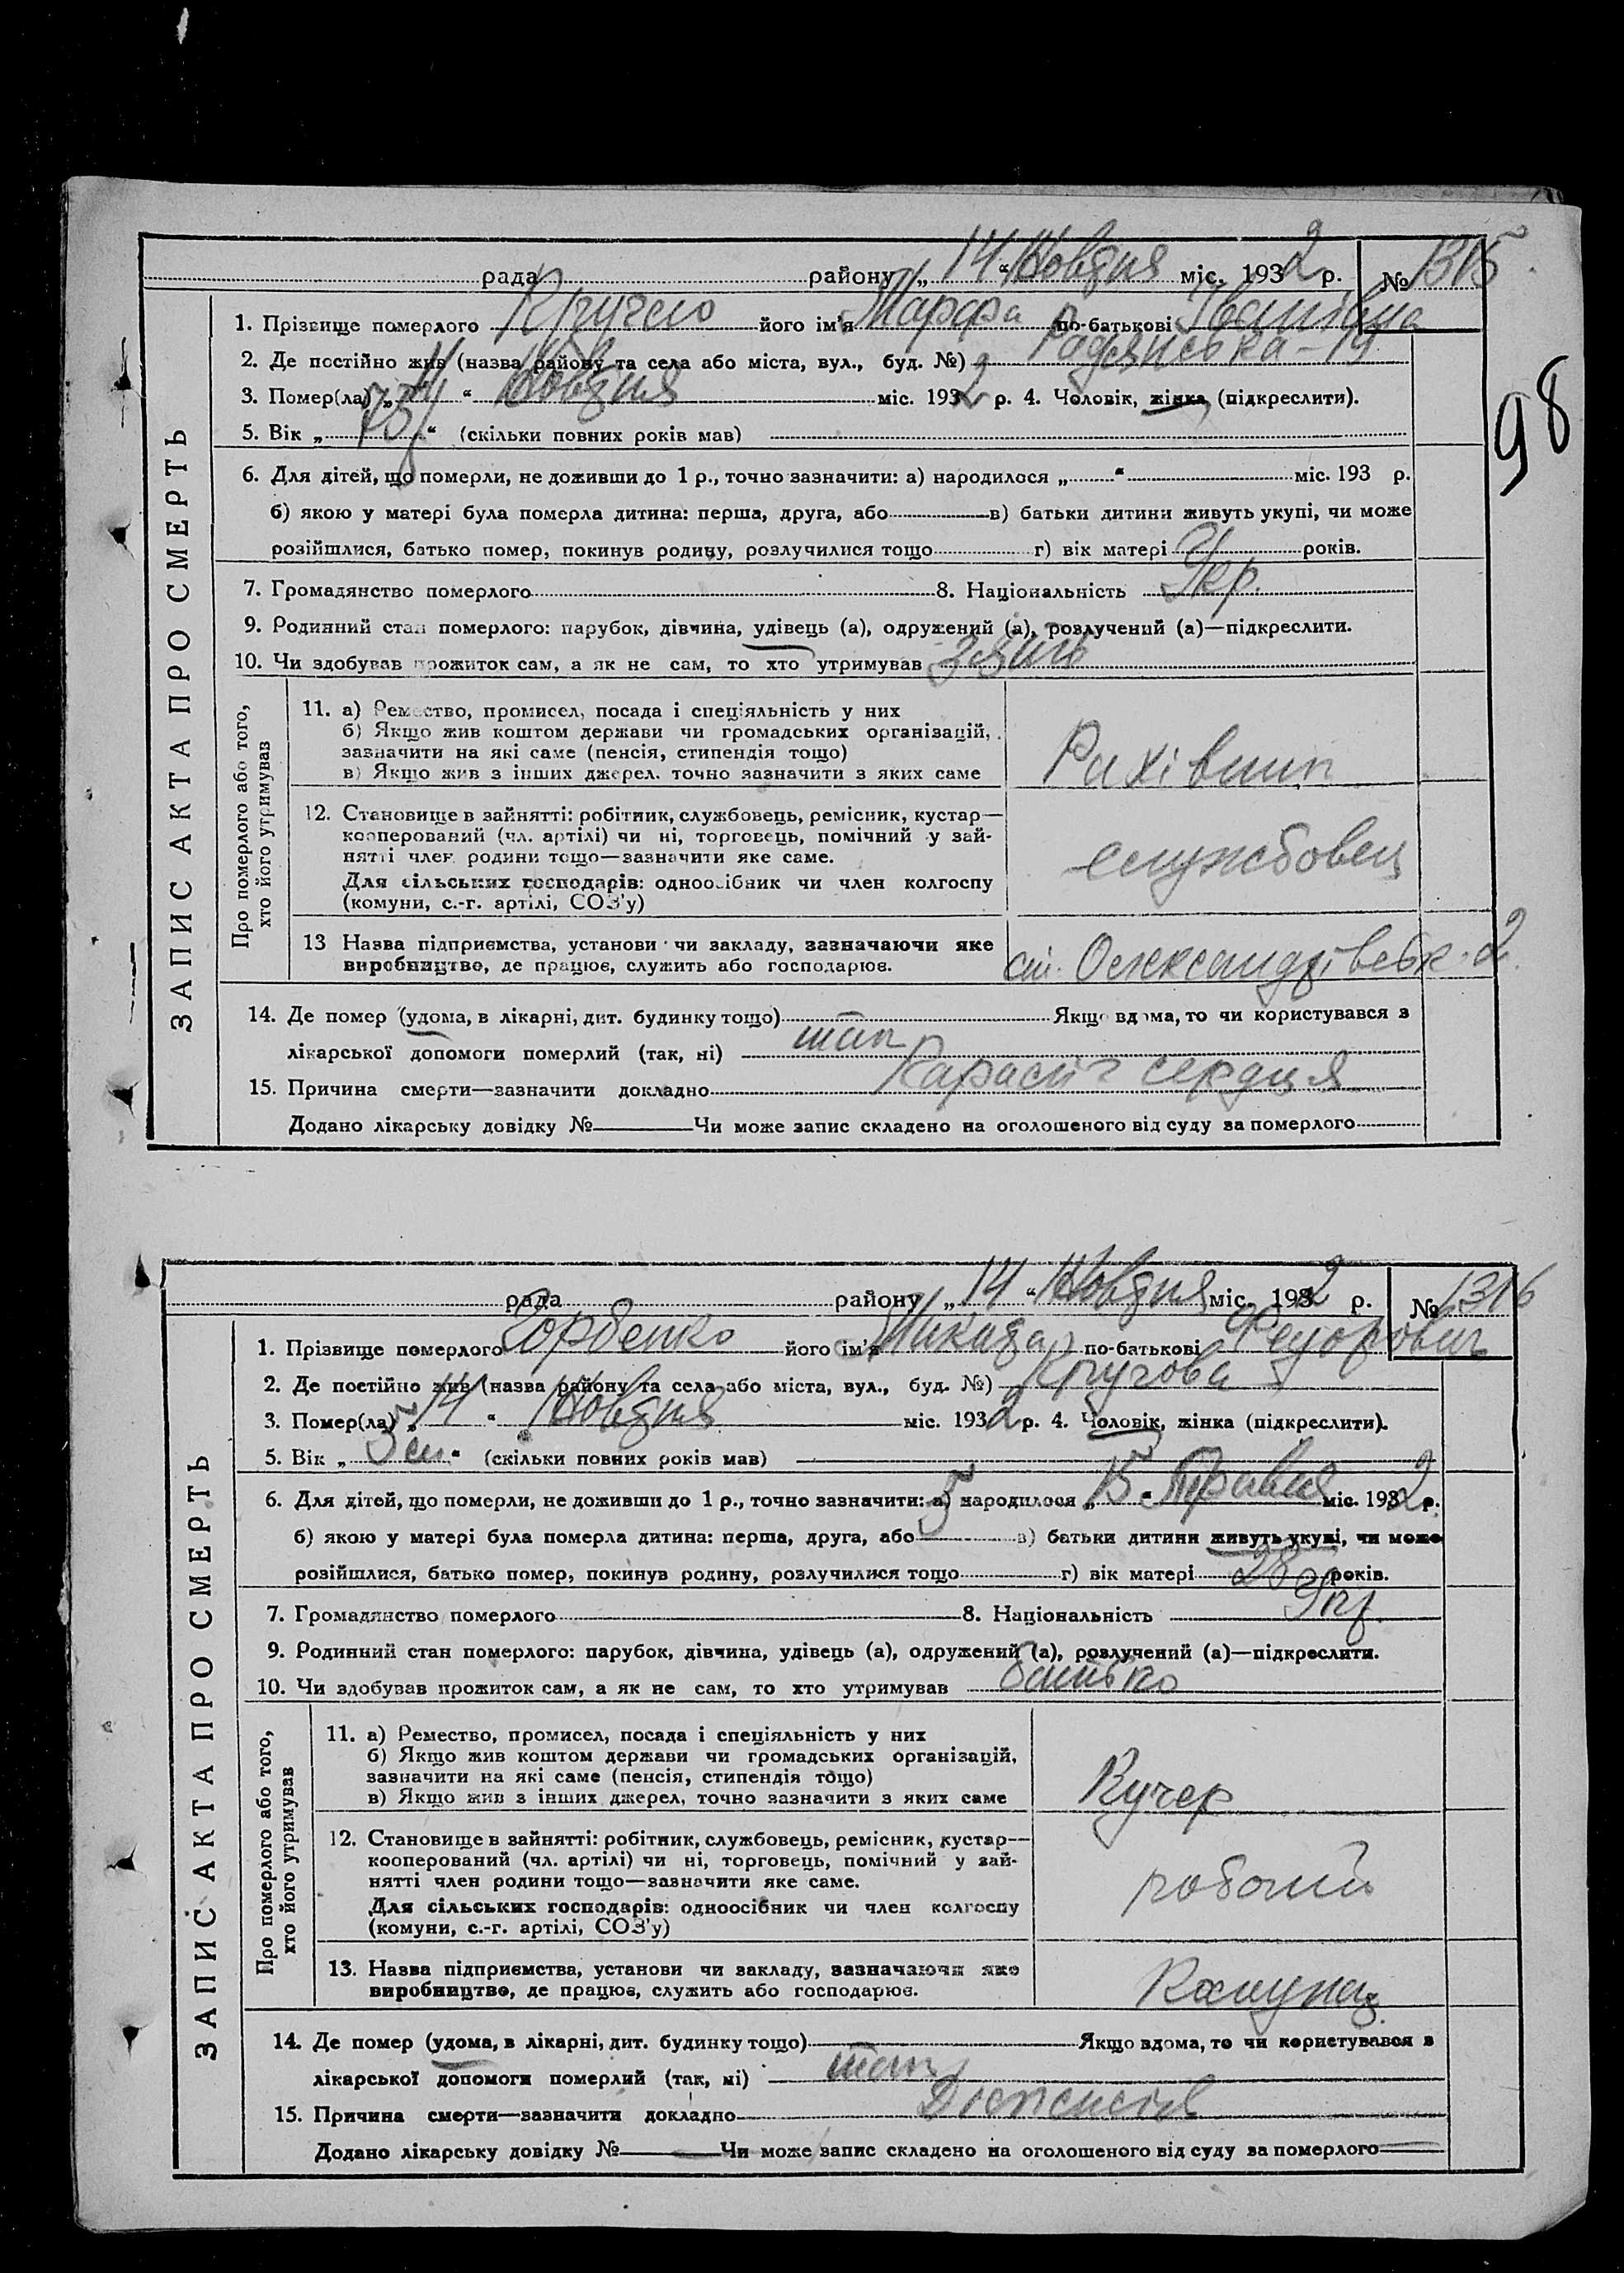 рада района „14“ Жовтня міс. 1932 р. № 1315
1. Прізвище померлого його ім'я Марфа по-батькові Іванівна
2. Де постійно жив (назва району та села або міста, вул., буд. №) Радянська-14
3. Помер(ла) „ “ Жовтня міс. 1932 р. 4. Чоловік, жінка (підкреслити).
5. Вік „73“ (скільки повних років мав)
98
6. Для дітей, що померли, не доживши до 1 р., точно зазначити: а) народилося „ “ міс. 193 р.
б) якою у матері була померла дитина: перша, друга, або в) батьки дитини живуть укупі, чи може
розійшлися, батько помер, покинув родину, розлучилися тощо г) вік матері років.
7. Громадянство померлого 8. Національність Укр.
9. Родинний стан померлого: парубок, дівчина, удівець (а), одружений (а), розлучений (а)—підкреслити.
10. Чи здобував прожиток сам, а як не сам, то хто утримував зять
ЗАПИС АКТА ПРО СМЕРТЬ
Про померлого або того,
хто його утримував
11. а) Ремество, промисел, посада і спеціяльність у них
б) Якщо жив коштом держави чи громадських організацій,
зазначити на які саме (пенсія, стипендія тощо)
в) Якщо жив з інших джерел, точно зазначити з яких саме
Рахівник
12. Становище в зайнятті: робітник, службовець, ремісник, кустар—
кооперований (чл. артілі) чи ні, торговець, помічний у зай-
нятті член родини тощо—зазначити яке саме.
Для сільських господарів: одноосібник чи член колгоспу
(комуни, с.-г. артілі, СОЗ'у)
службовец
13 Назва підприємства, установи чи закладу, зазначаючи яке
виробництво, де працює, служить або господарює.
ст. Олександрівськ-2
14. Де помер (удома, в лікарні, дит. будинку тощо) Якщо вдома, то чи користувався з
лікарської допомоги померлий (так, ні) так
15. Причина смерти—зазначити докладно сердця
Додано лікарську довідку № Чи може запис складено на оголошеного від суду за померлого
рада району „14“ Жовтня міс. 1932 р. № 1316
1. Прізвище померлого Горбенко його ім'я Микита по-батькові Федорович
2. Де постійно жив (назва району та села або міста, вул., буд. №) Кругова
3. Помер(ла) „14“ Жовтня міс. 1932 р. 4. Чоловік, жінка (підкреслити).
5. Вік „5 м“ (скільки повних років мав)
6. Для дітей, що померли, не доживши до 1 р., точно зазначити: а) народилося „15“ Травня міс. 1932 р.
б) якою у матері була померла дитина: перша, друга, або 5 в) батьки дитини живуть укупі, чи може
розійшлися, батько помер, покинув родину, розлучилися тощо г) вік матері 28 років.
7. Громадянство померлого 8. Національність Укр.
9. Родинний стан померлого: парубок, дівчина, удівець (а), одружений (а), розлучений (а)—підкреслити.
10. Чи здобував прожиток сам, а як не сам, то хто утримував батько
ЗАПИС АКТА ПРО СМЕРТЬ
Про померлого або того,
хто його утримував
11. а) Ремество, промисел, посада і спеціяльність у них
б) Якщо жив коштом держави чи громадських організацій,
зазначити на які саме (пенсія, стипендія тощо)
в) Якщо жив з інших джерел, точно зазначити з яких саме
Кучер
12. Становище в зайнятті: робітник, службовець, ремісник, кустар—
кооперований (чл. артілі) чи ні, торговець, помічний у зай-
нятті член родини тощо—зазначити яке саме.
Для сільських господарів: одноосібник чи член колгоспу
(комуни, с.-г. артілі, СОЗ'у)
робочий
13. Назва підприємства, установи чи закладу, зазначаючи яке
виробництво, де працює, служить або господарює.
14. Де помер (удома, в лікарні, дит. будинку тощо) Якщо вдома, то чи користувався з
лікарської допомоги померлий (так, ні) так
15. Причина смерти—зазначити докладно Діспенсія
Додано лікарську довідку № Чи може запис складено на оголошеного від суду за померлого